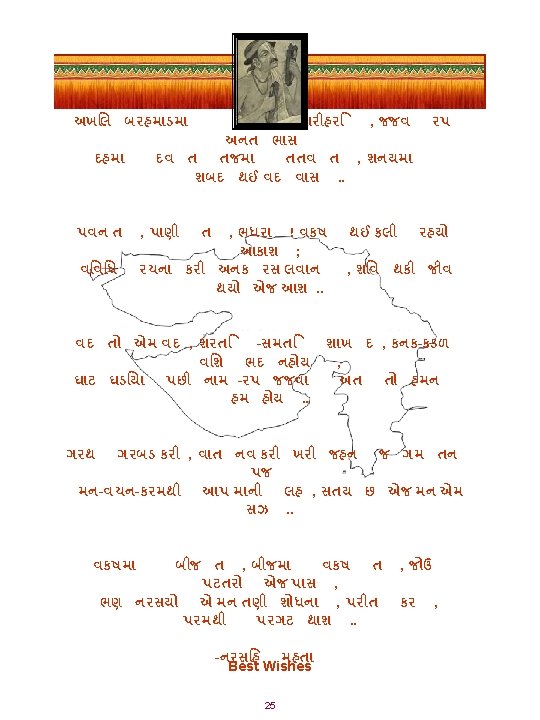 અખલિ બરહમાડમા રીહરિ , જજવ રપ
અનત ભાસ
દહમા દવ ત તજમા તતવ ત , શનયમા
શબદ થઈ વદ વાસ ..
પવન ત , પાણી ત , ભધરા ! વકષ થઈ કલી રહયો
આકાશ ;
વવિધિ રચના કરી અનક રસ લવાન , શવિ થકી જીવ
થયો એજ આશ ..
વદ તો એમ વદ , શરતિ -સમતિ શાખ દ , કનક-કકળ
વશિ ભદ નહોય ;
ઘાટ ઘડયિા પછી નામ -રપ જજવા અત તો હમન
હમ હોય ..
ગરથ ગરબડ કરી , વાત નવ કરી ખરી જહન જ ગમ તન
પજ
મન-વચન-કરમથી આપ માની લહ , સતય છ એજ મન એમ
સઝ ..
વકષમા બીજ ત , બીજમા વકષ ત , જોઉ
પટતરો એજ પાસ ,
ભણ નરસયો એ મન તણી શોધના , પરીત કર ,
પરમથી પરગટ થાશ ..
-નરસહિ મહતા
Best Wishes
25